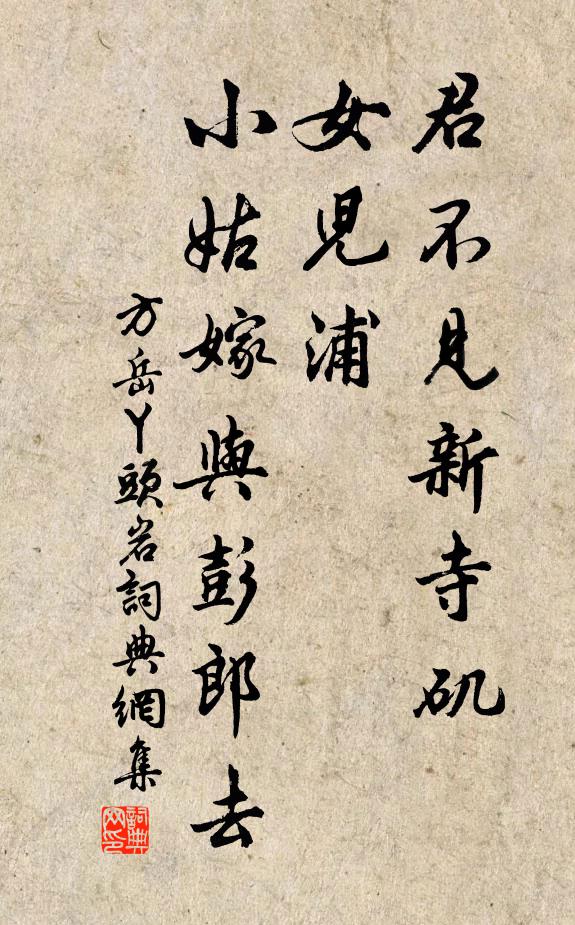 君不見新寺矶
女児浦
小姑嫁與彭郎去
方岳丫頭岩詞典網集
詞典
网印